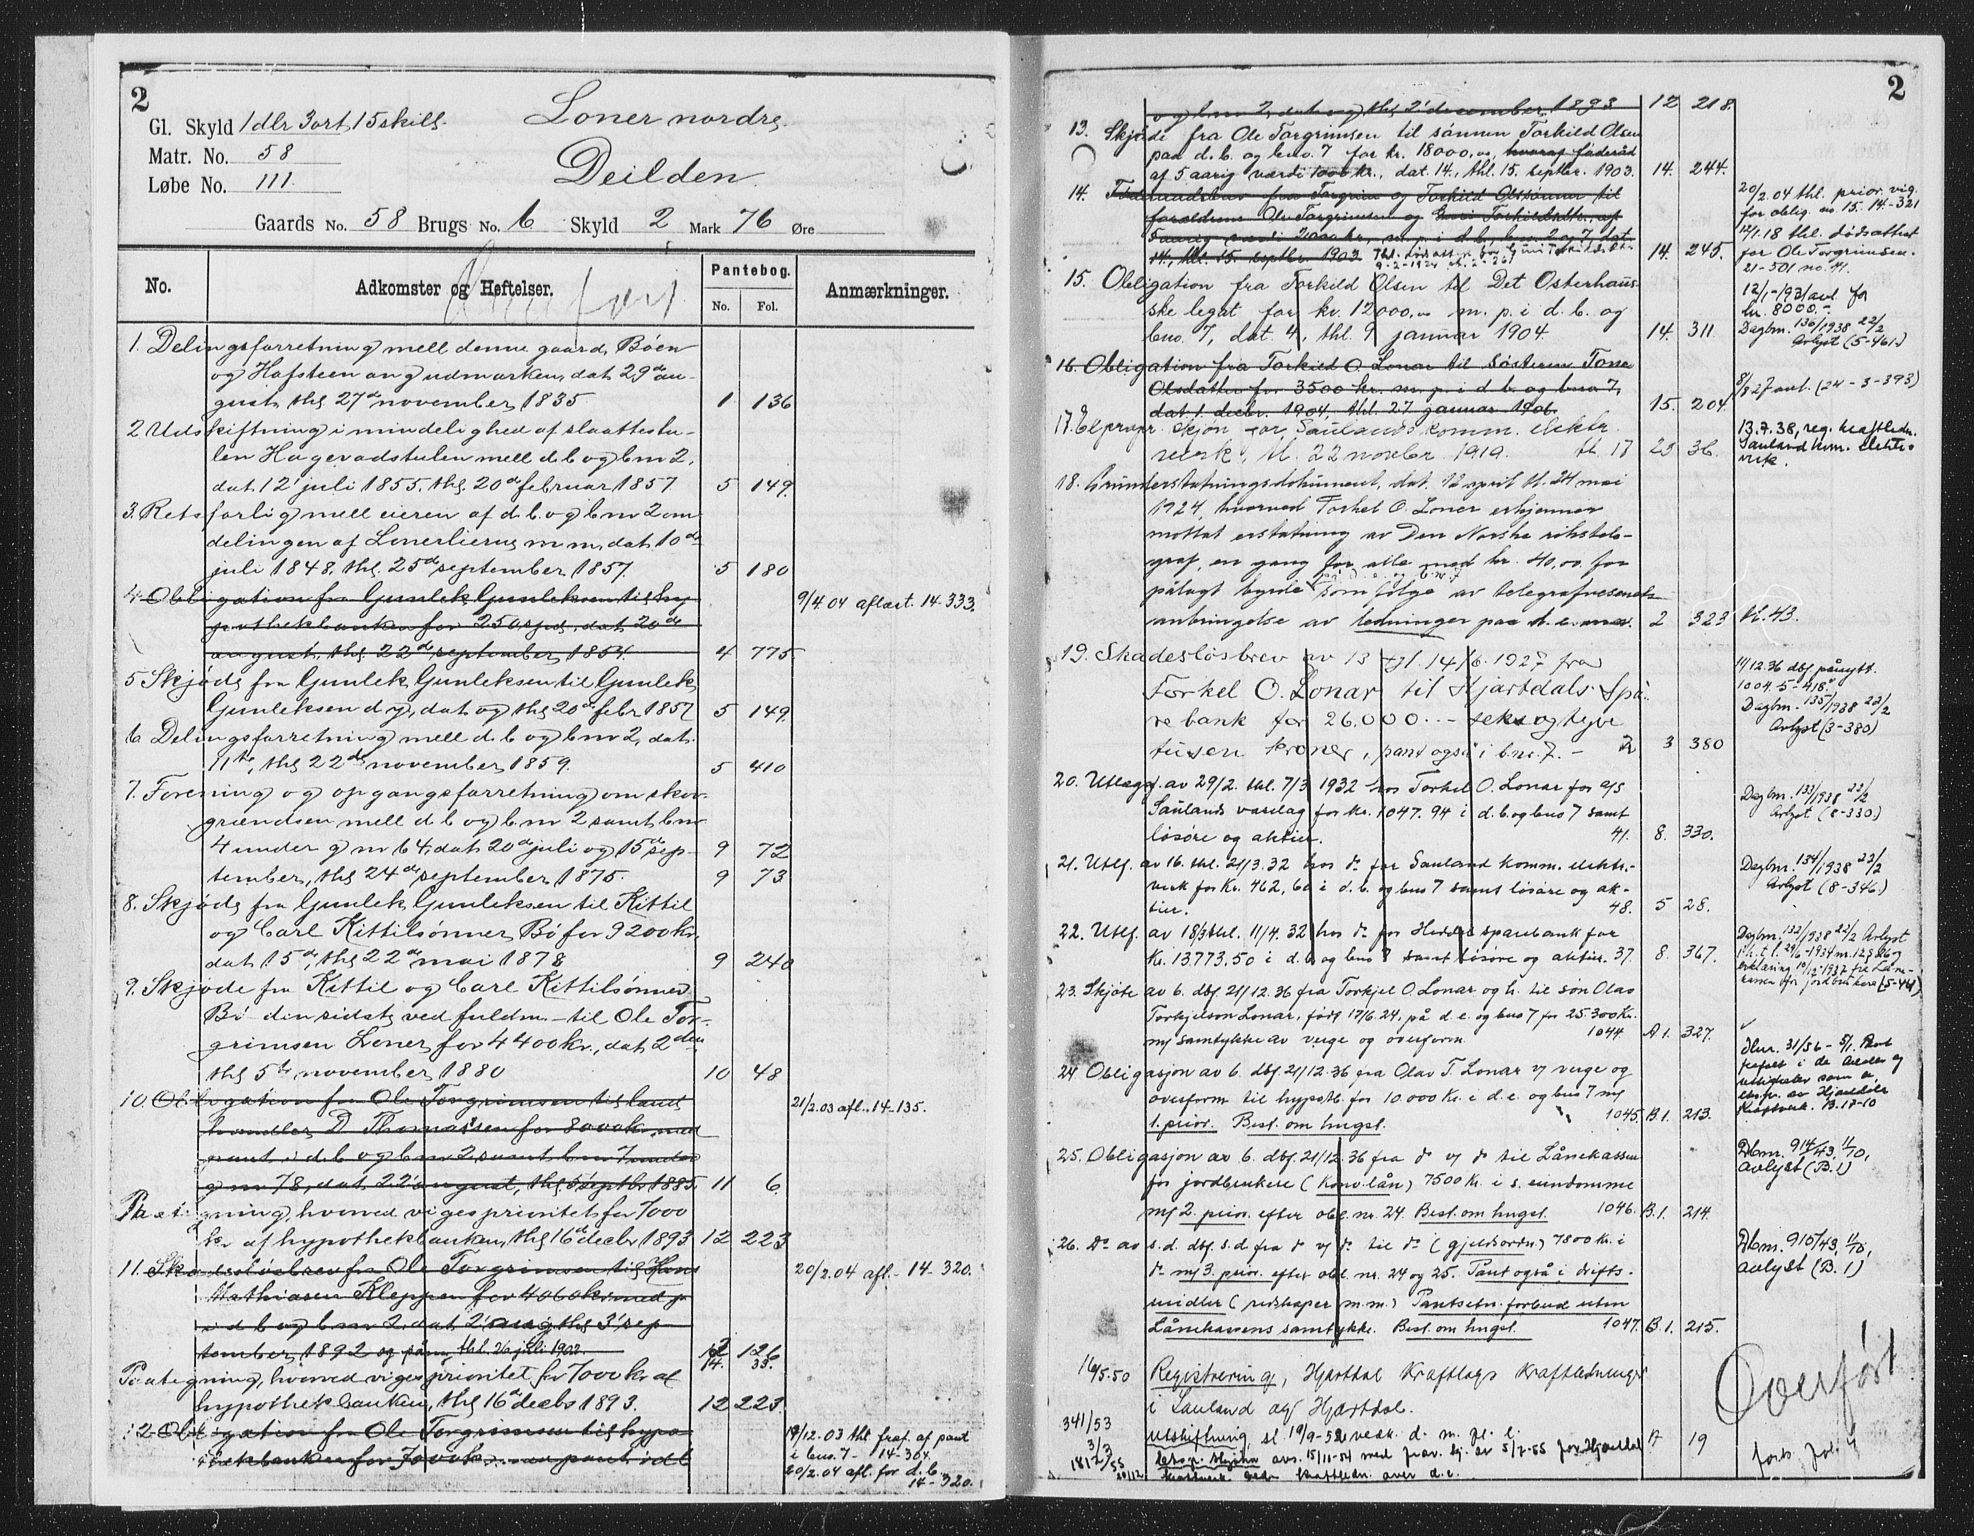 2
Gl. Skyld 1 dlr 3 ort 15 skill.
Matr. No. 58
Løbe No. 111
Loner nordre
Deilden
Gaards No. 58 Brugs No. 6 Skyld 2 Mark 76 Øre
No. Adkomster og Heftelser. Pantebog. No. Fol. Anmærkninger.
1. Delingsforretning mell denne gaard, Bøen
og Hafsteen ang udmarken, dat 29de au-
gust, thl 27de november 1835 1 136
2. Udskiftning i mindelighed af slaattestu-
len Hagevadstulen mell d. b. og b nr 2,
dat 12te juli 1855, thl 20de februar 1857 5 149.
3. Retsforlig mell eieren af d. b. og b nr 2 om
delingen af Lonerlierne m m, dat 10de
juli 1848, thl 25de september 1857. 5 180
4. Obligation fra Gunlek Gunleksen til hy
pothekbanken for 250 spd, dat 20de
august, thl 22de september 1854 4 775. 9/4.04 aflæst. 14-333.
5. Skjøde fra Gunlek Gunleksen til Gunlek
Gunleksen d y, dat og thl 20de febr 1857 5 149.
6. Delingsforretning mell d. b og b nr 2, dat
11te, thl 22de november 1859. 5 410
7. Forening og opgangsforretning om skov-
grændsen mell d b og b nr 2 samt b nr
4 under g nr 64, dat 20de juli og 15de sep- 9 72
tember, thl 24de september 1875. 9 73
8. Skjøde fra Gunlek Gunleksen til Kittil
og Carl Kittilsønner Bø for 9200 kr,
dat 15de, thl 22de mai 1878 9 240
9. Skjøde fra Kittil og Carl Kittilsønner
Bø – den sidste ved fuldm. – til Ole Tor-
grimsen Loner for 4400 kr., dat 2den
thl 5te november 1880 10 48
10. Obligation fra Ole Torgrimsen til land
handler D Thomassen for 8000 kr med
pant i d. b og b nr 2 samt b nr 7 under
g nr 78, dat 22 august, thl 5 septbr 1885. 11 6. 21/2.03 afl., 14-135.
Paategning, hvorved viges prioritet for 7000
kr af hypothekbanken, thl 16de decbr 1893 12 223
11. Skadesløsbrev fra Ole Torgrimsen til Hans
Mathiasen Kleppen for 4060 kr med p
i d b og b nr 2, dat 2 aug thl 3 sep-
tember 1892 og paany thl. 26 juli 1902 12 126 14. 33. 20/2.04 afl. - 14-320.
Paategning, hvorved viges prioritet for 7000 kr af
hypothekbanken, thl 16de decbr 1893. 12 223.
12. Obligation fra Ole Torgrimsen til hypo
thekbanken for 7000 kr. pant i d b
19/12.03 thl fraf. af pant
i bno. 7 - 14-304
20/2.04 afl. for d. b.
14-320.
2
og b nr 2, dat og thl 2 december 1893 12 218.
13. Skjøde fra Ole Torgrimsen til sønnen Torkild Olsen
paa d. b. og bno. 7 for kr. 18000,00, hvoraf føderåd
af 5 aarig værdi 1000 kr., dat. 14, thl. 15. septbr. 1903. 14. 244.
14. Føderaadsbrev fra Torgrim og Torkild Olssønner til
forældrene Ole Torgrimsen og Guri Torkildsdtr., af
5 aarig værdi 2000 kr., m. p. i d. b., bno. 2 og 7, dat
14, thl. 15. septbr. 1903 14. 245.
20/2.04 thl. prior. vig.
for oblig. no. 15. 14-321
14/1.18 thl. dødsattest
for Ole Torgrimsen.
21-501 no. 41.
15. Obligation fra Torkild Olsen til Det Osterhaus-
ske legat for kr. 12000,00 m. p. i d. b. og
bno. 7, dat. 4, thl. 9 januar 1904. 14. 311.
12/1-1931 avl. for
kr. 8000.-
Dagbnr. 136/1938 22/2
Avlyst (5-461.)
16. Obligation fra Torkild O. Lonar til søsteren Tone
Olsdatter for 3500 kr. m. p. i d. b. og bno 7,
dat. 1. decbr. 1904, thl. 27 januar 1906. 15. 204. 8/8 27 avl. (24-3-393)
17. Expropr. skjøn for Saulands komm. elektr.
verk, tl. 22 novbr 1919. tl. 17 23 36.
13.7.38, reg. kraftledn.
Sauland kom. elektr.
verk.
18. Grunderstatningsdokument, dat. 12 april tl. 24 mai
1924, hvorved Torkel O. Loner erkjenner
mottat erstatning av Den Norske rikstele-
graf, en gang for alle med kr. 40,00 for
pålagt byrde som følge av telegrafvesenets
anbringelse av ledninger paa d. e. 2 323 tl. 43.
19. Skadesløsbrev av 13 tgl. 14/6. 1927 fra
Torkel O. Lonar til Hjartdals Spa-
rebank for 26.000.-- seks og tyve
tusen kroner, pant også i bnr. 7.- 3 380
11/12.36 dbf. pånytt.
1004. 5-418
Dagbnr. 135/1938 22/2
Avlyst (3-380)
20. Utlegg av 29/2. thl. 7/3 1932 hos Torkel O. Lonar for a/s
Saulands varelag for kr. 1047.94 i d. b. og bno 7 samt
løsøre og aktier. 41. 8. 330.
Dagbnr. 133/1938 22/2
Avlyst (8-330.)
21. Utlf. av 16. thl. 21/3.32 hos do for Sauland komm. elektr.-
verk for kr. 462,60 i d. b. og bno 7 samt løsøre og ak-
tier. 48. 5 28.
Dagbnr. 134/1938 22/2
Avlyst (8-346.)
22. Utlf. av 18/3 thl. 11/4. 32 hos do for Heddal sparebank for
kr. 13773.50 i d. b. og bno 7 samt løsøre og aktier. 37. 8. 367.
Dagbnr. 132/1938 22/2 Avlyst
23. Skjøte av 6. dbf. 21/12.36 fra Torkjel O. Lonar og h. til søn Olav
Torkjelson Lonar, født 17/6.24, på d. e. og bno 7 for 25.300 kr.
m/ samtykke av verge og overform. 1044 A 1. 327.
24. Obligasjon av 6. dbf. 21/12.36 fra Olav T. Lonar v/ verge og
overform til hypotb. for 10 000 kr. i d. e. og bno 7 m/
1. prior. Best. om hugst. 1045. B. 1. 213.
25. Obligasjon av 6. dbf. 21/12.36 fra do v/ do til Lånekassen
for jordbrukere (konv. lån) 7500 kr. i s. eiendomme
m/ 2. prior. efter obl. nr. 24. Best. om hugst. 1046. B. 1. 214.
Dbnr. 914/43, 11/10,
avlyst (B. 1)
26. Do av s. d. dbf. s. d fra do v/ do til do (gjeldsordn.) 7800 kr. i
do m/ 3. prior. efter obl. nr. 24 og 25. Pant også i drifts-
midler (redskaper m. m.) Pantsetn. forbud uten
Lånekassens samtykke. Best. om hugst. 1047. B. 1. 215.
Dbnr. 915/43, 11/10,
avlyst (B. 1)
16/5.50 Registrering, Hjartdal Kraftlags kraftledninger
i Sauland og Hjartdal.
341/53 3/3 Utskiftning, sl 19/9-52 vedk. d. m. fl. e. A 19
Overført